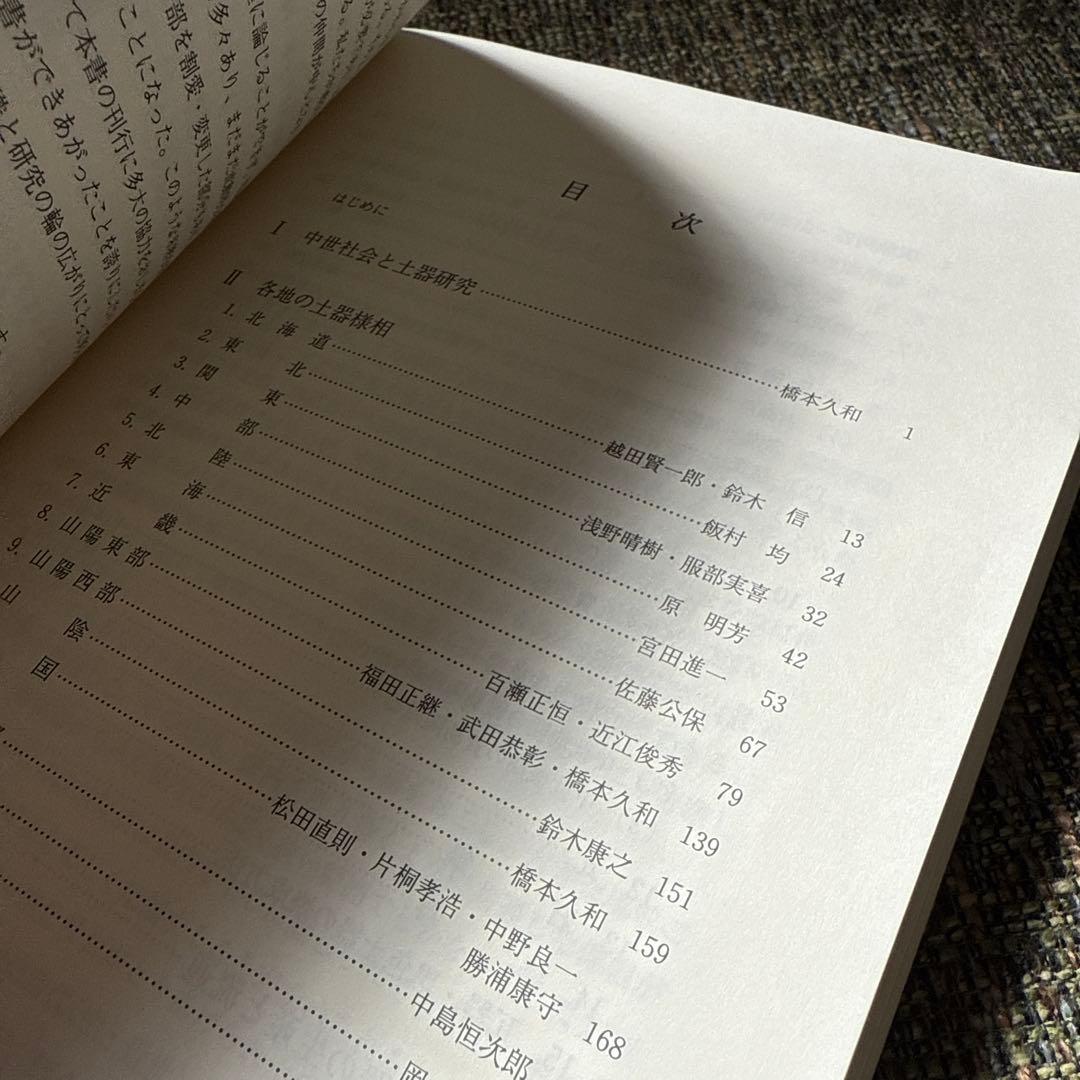 の仲間が
に論じることができ
多々あり、まだまだ
部を割愛・変更した
ことになった。このような
て本書の刊行に多大の協力を
書ができあがったことを誇りに
と研究の輪の広がりに
目　次
はじめに
Ⅰ 中世社会と土器研究……橋本久和 1
Ⅱ 各地の土器様相
1. 北海道……越田賢一郎・鈴木 信 13
2. 東北……飯村 均 24
3. 関東……浅野晴樹・服部実喜 32
4. 中部……原 明芳 42
5. 北陸……宮田進一 53
6. 東海……佐藤公保 67
7. 近畿……百瀬正恒・近江俊秀 79
8. 山陽東部……福田正継・武田恭彰・橋本久和 139
9. 山陽西部……鈴木康之 151
山陰……橋本久和 159
国……松田直則・片桐孝浩・中野良一
勝浦康守 168
……中島恒次郎
……岡